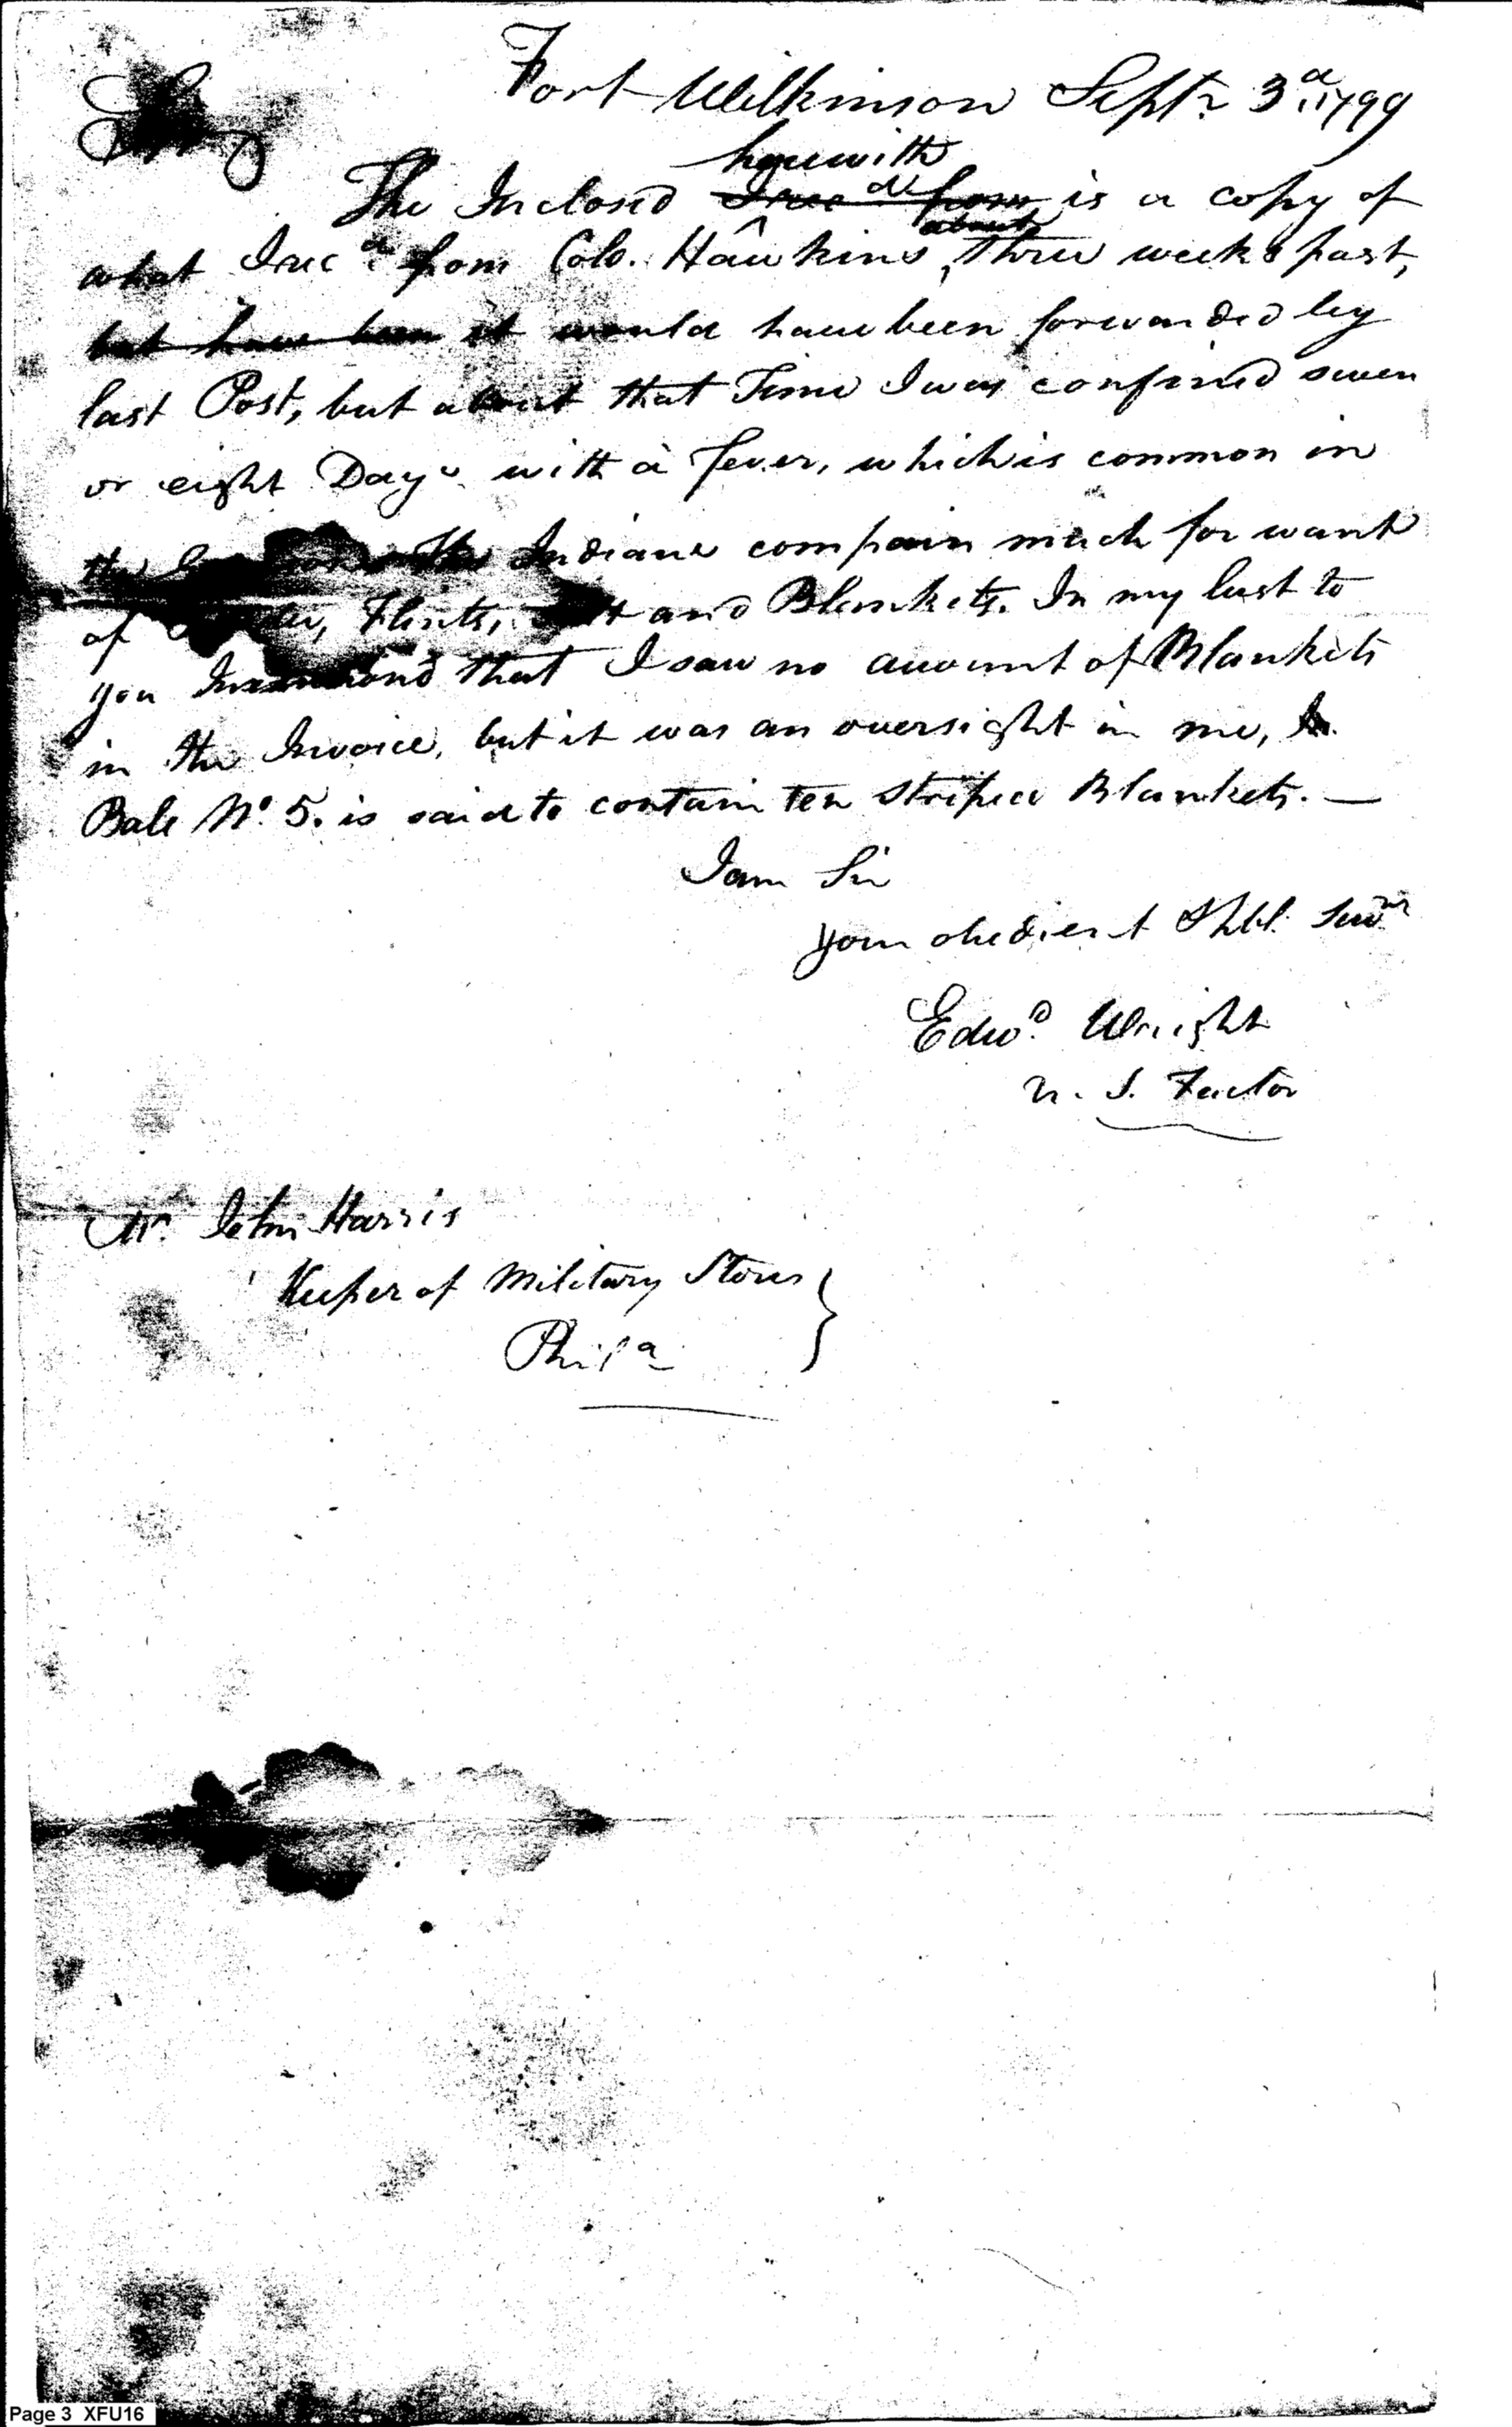 Fort Wilkinson Sept.r 3d. 1799
Sir
herewith
The Inclosed I rec.d from is a copy of
about
what I rec.d from Colo. Hawkins, three weeks past,
but have been it would have been forwarded by
last Post, but about that Time I was confined seven
or eight Days with a fever, which is common in
the The Indians compain much for want
of Flints, and Blankets. In my last to
you that I saw no account of Blankets
in the Invoice, but it was an oversight in me,
Bale No. 5. is said to contain ten striped Blankets. —
I am Sir
your obedient Hbl. Servt
Edwd. Wright
U. S. Factor
Mr. John Harris
Keeper of Military Stores
Phila
Page 3 XFU16